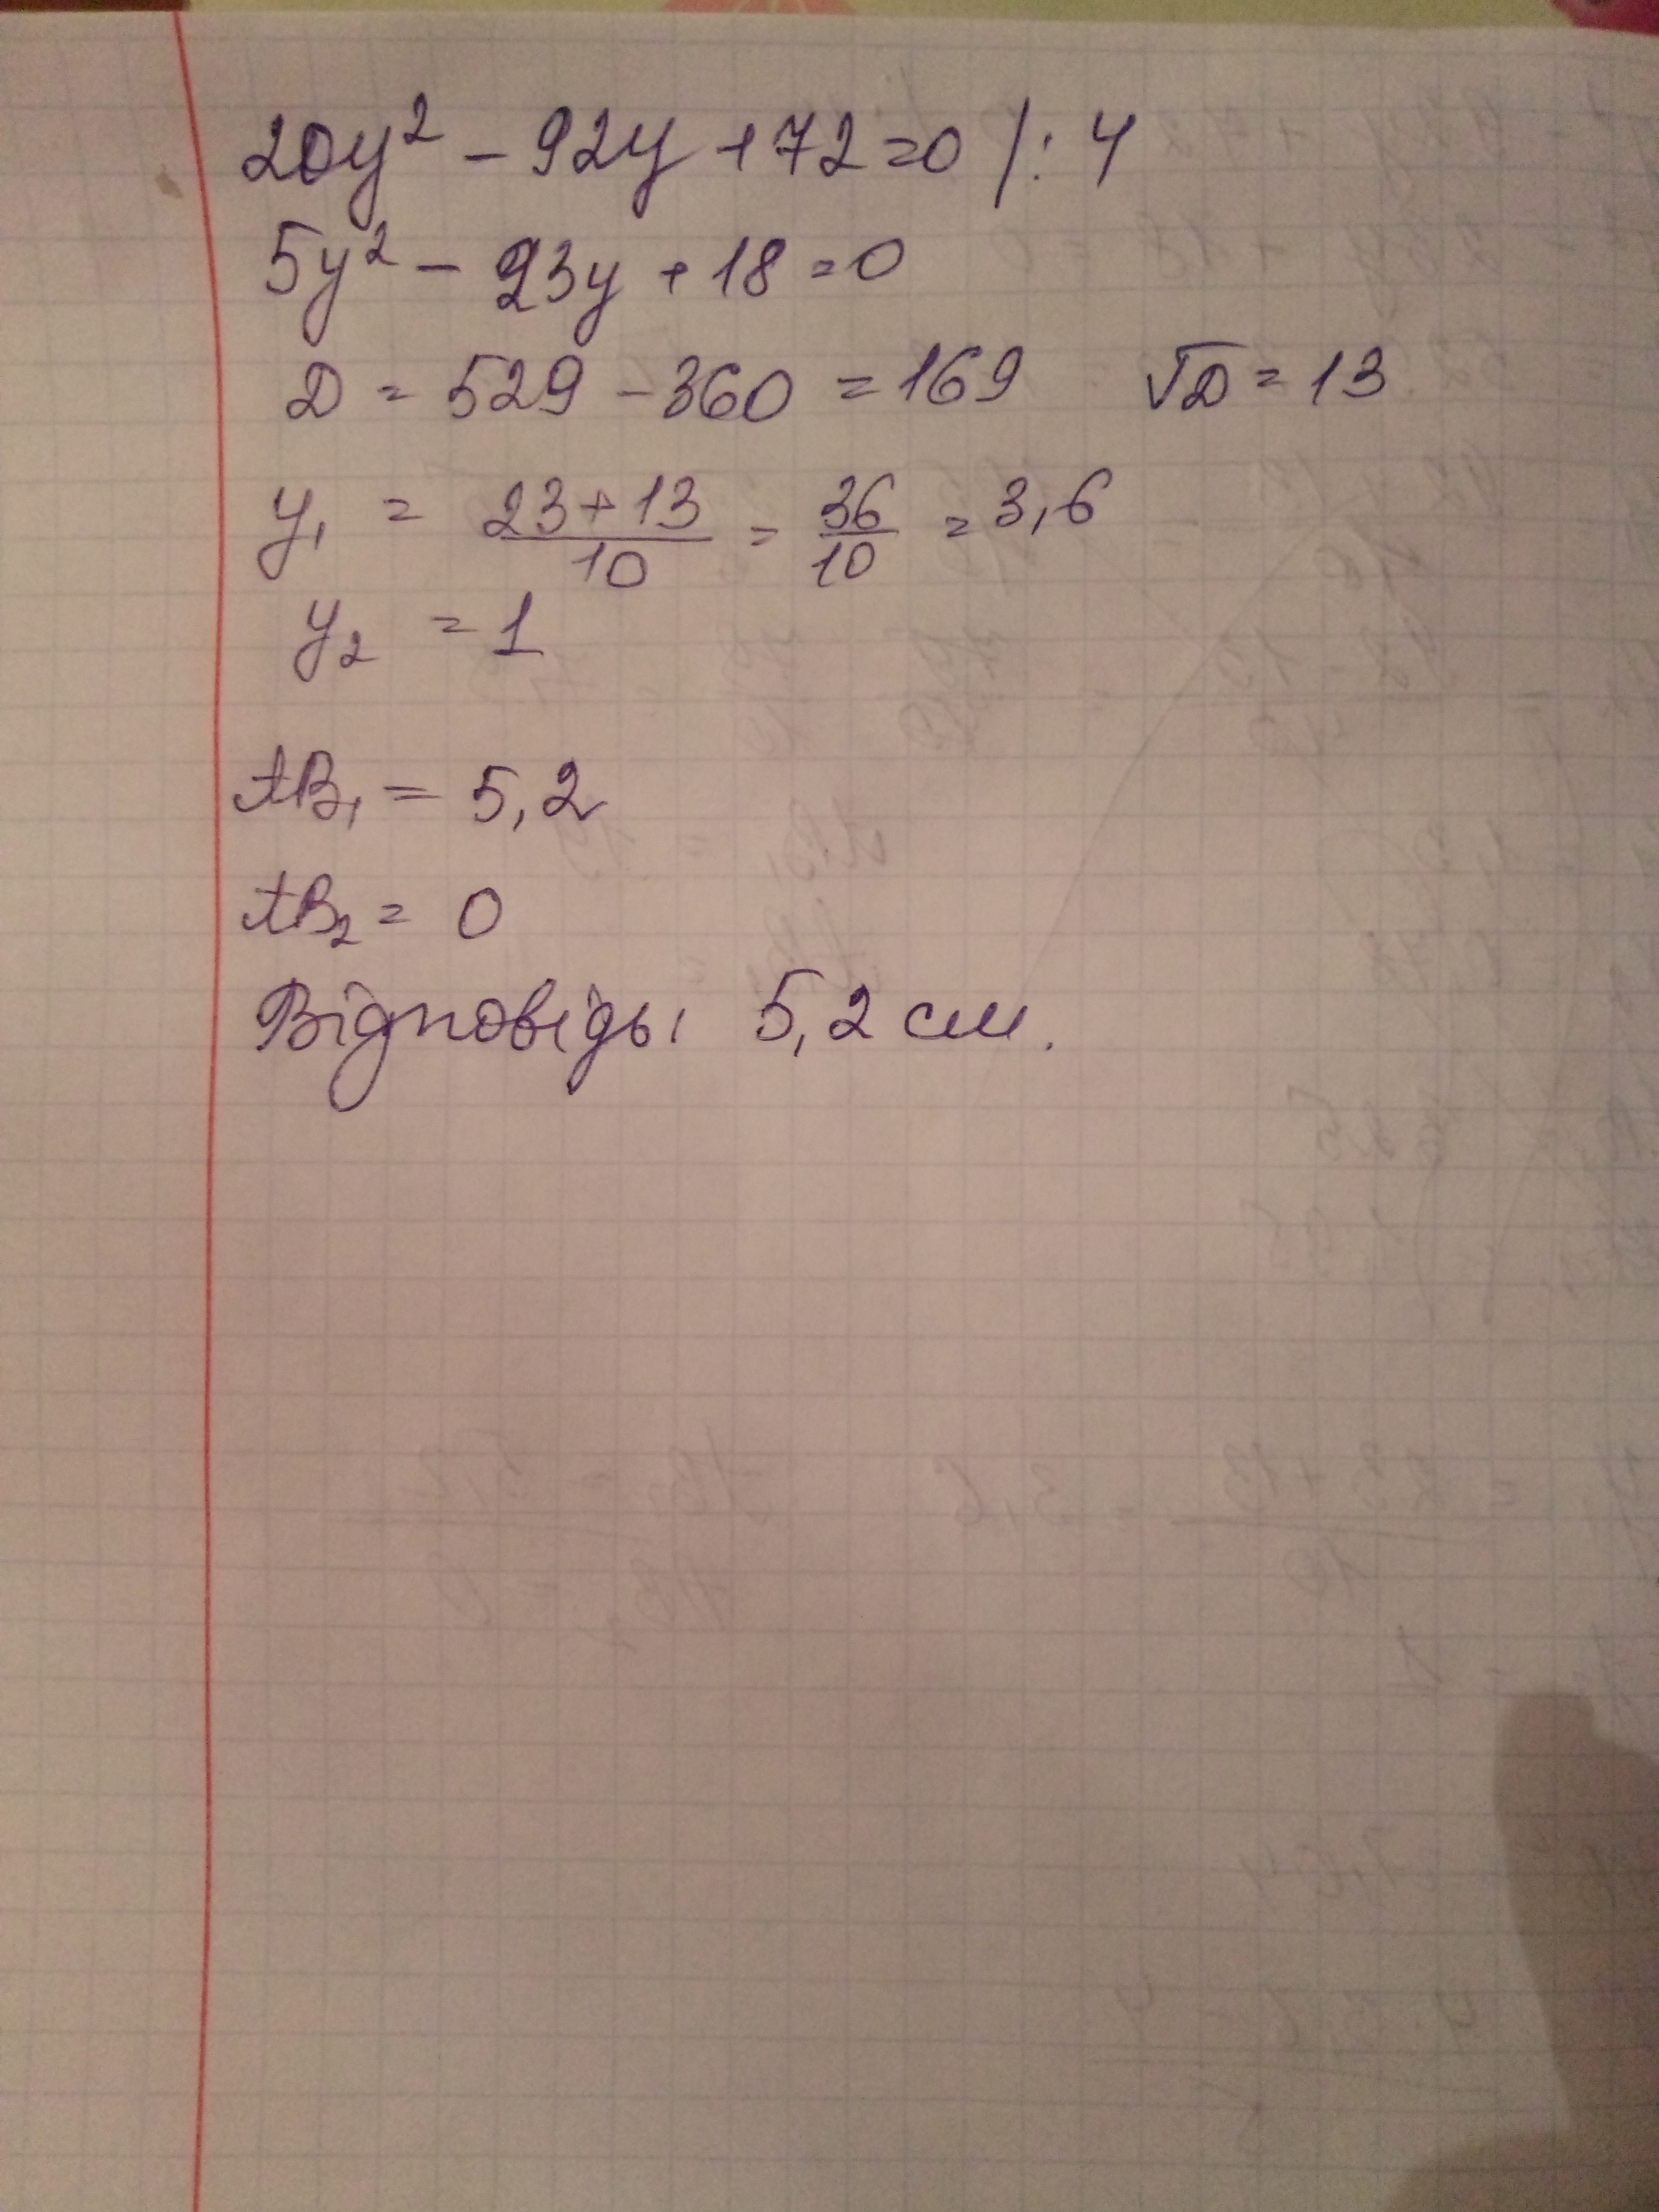 20y² - 92y + 72 = 0 /: 4
5y² - 23y + 18 = 0
D = 529 - 360 = 169 √D = 13
y₁ = (23 + 13)/10 = 36/10 = 3,6
y₂ = 1
AB₁ = 5,2
AB₂ = 0
Відповідь: 5,2 см.